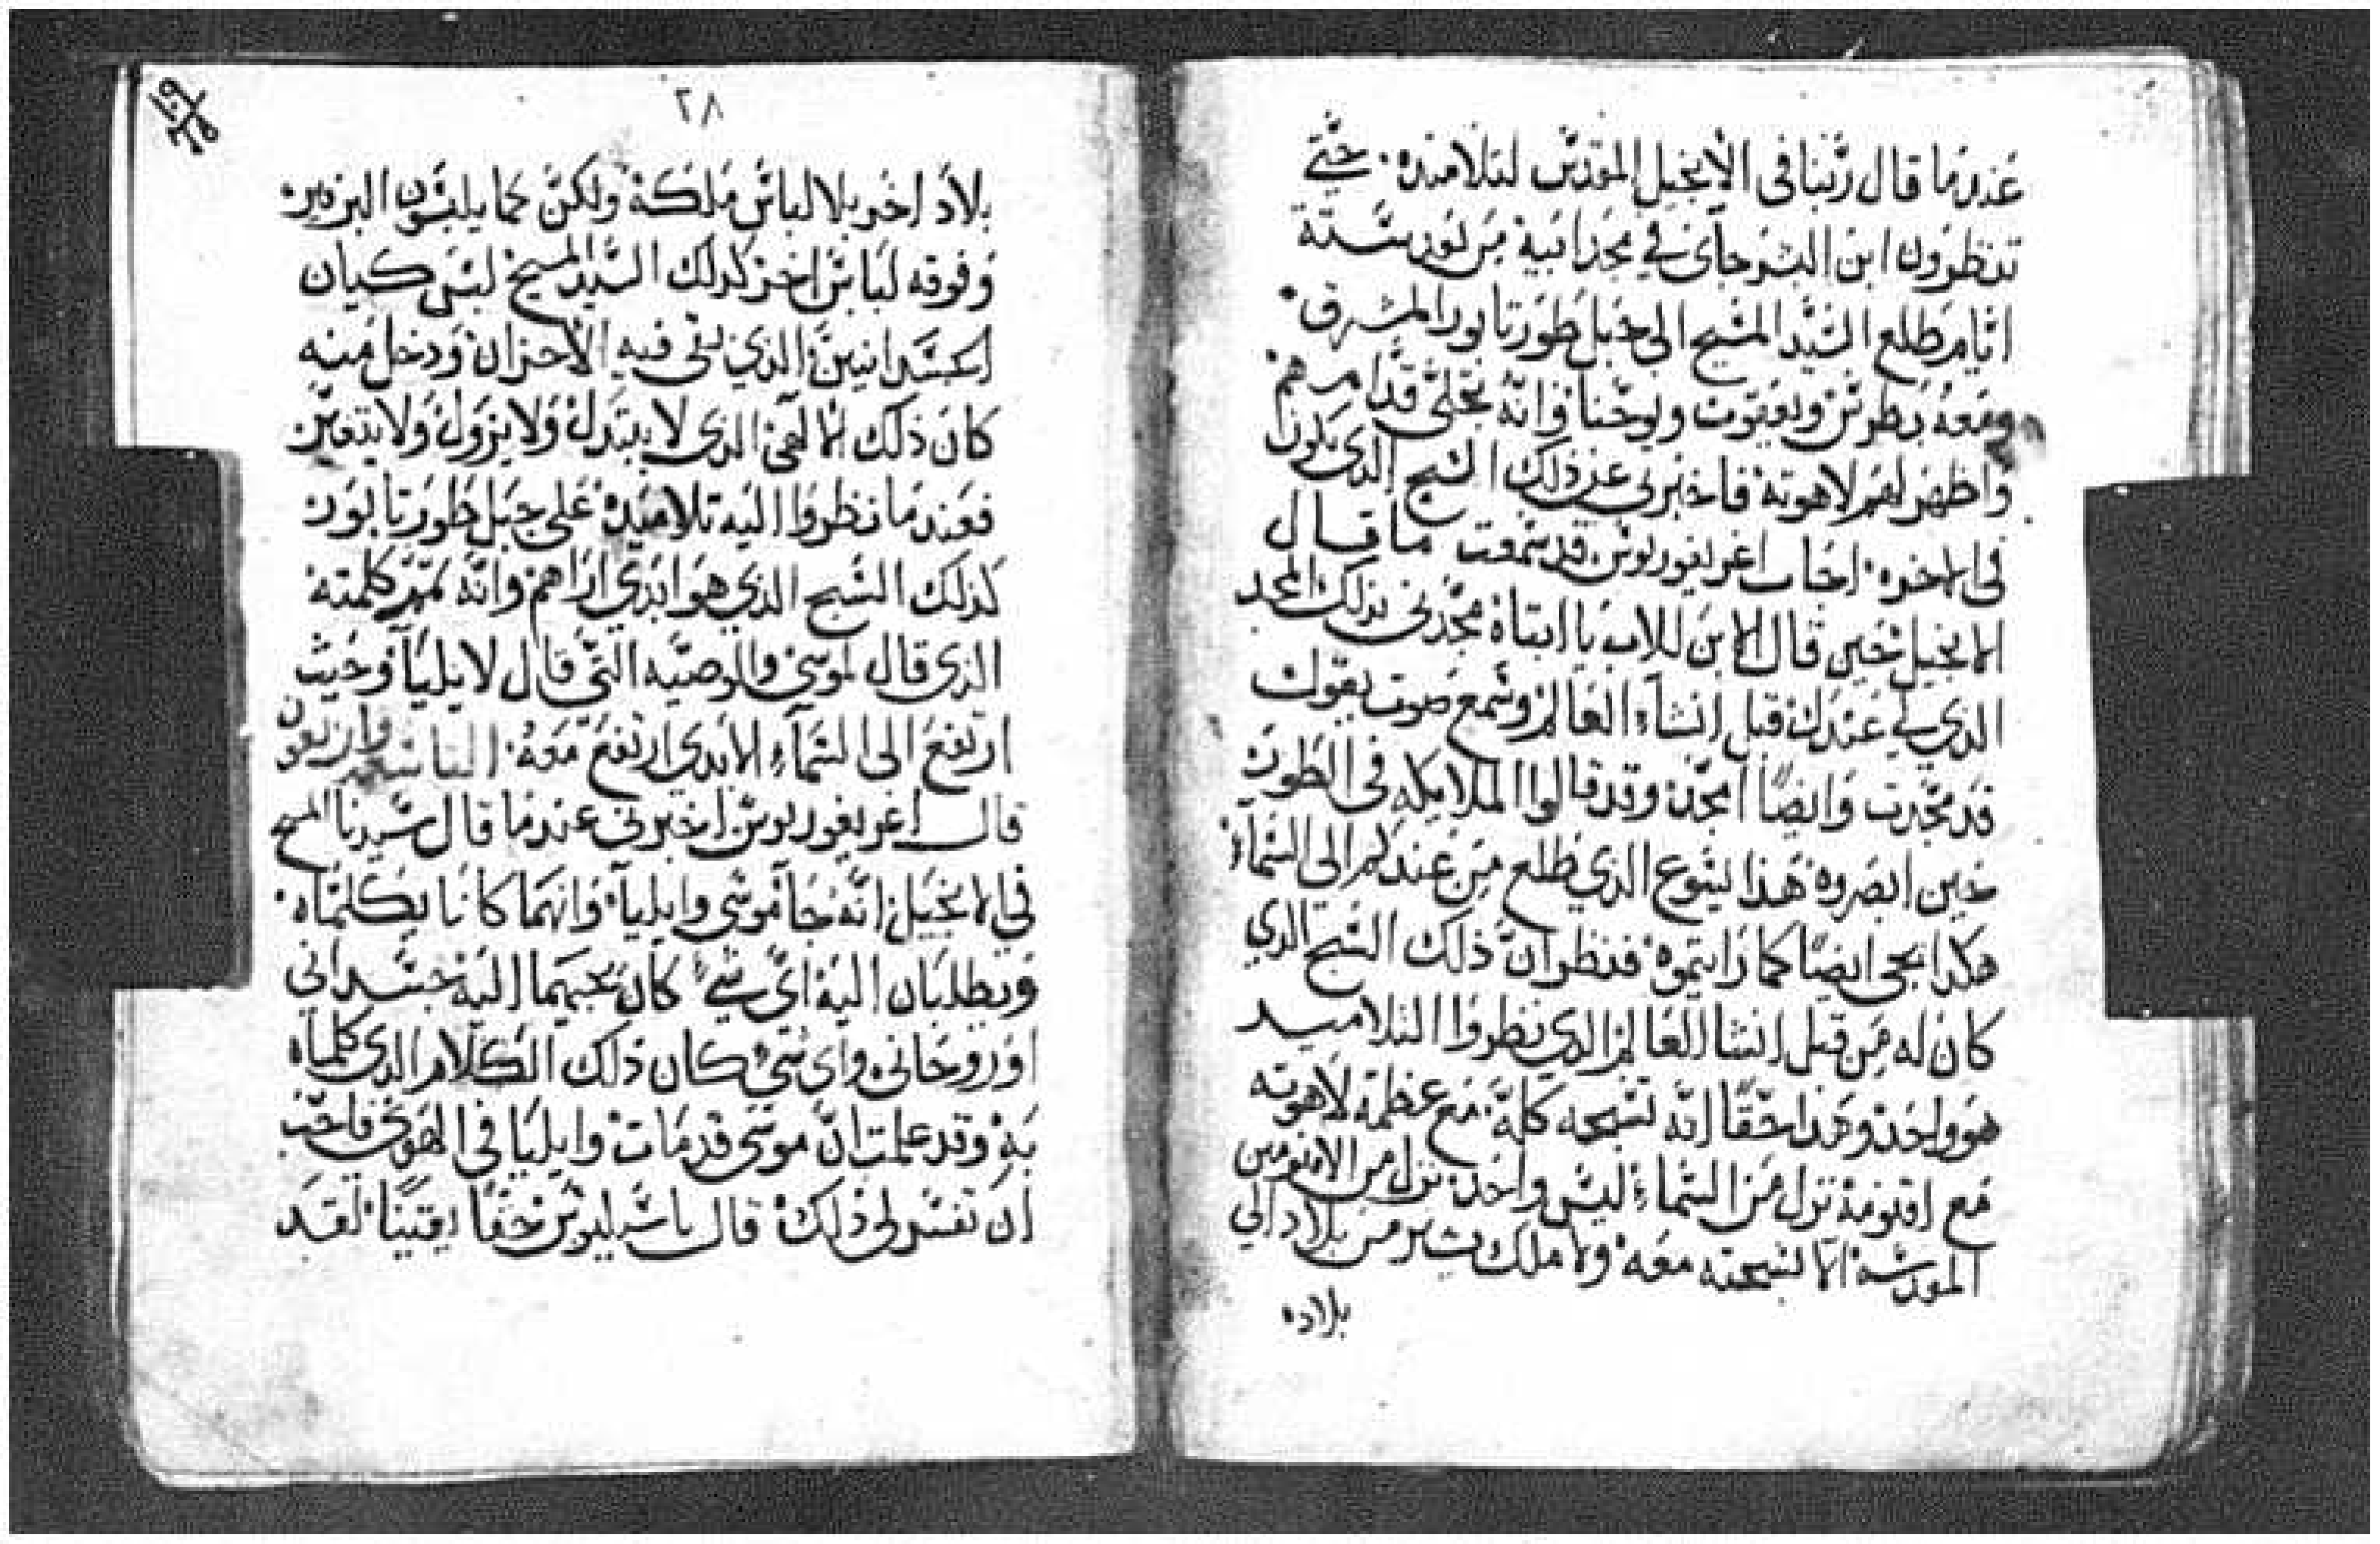 عندما قال ربنا فى الانجيل المقدس لتلاميذه. حتي
تنظرون ابن البشر جآى في مجد ابيه من بعد ستة
ايام طلع السيد المسيح الى جبل طور تابور المشرق.
ومعه بطرس ويعقوب ويوحنا وانه تجلى قدامهم
واظهر لهم لاهوته فاخبرني عن ذلك الشبح الذى يكون
فى الاخره. اجاب اغريغوريوس قد سمعت ما قال
الانجيل حين قال الابن للاب يا ابتاه مجدنى بذلك المجد
الذي لي عندك قبل انشاء العالم وسمع صوت يقول
قد مجدت وايضا امجد وقد قالوا الملايكه فى الطور
حين ابصروه هذا يسوع الذي طلع من عندكم الى السمآء
هكذا يجى ايضا كما رايتموه فنظر ان ذلك الشبح الذي
كان له من قبل انشا العالم الذي نظروا التلاميد
هو واحد وهذا حقا انه تشبحه كله مع عظمة لاهوته
مع اقنومه نزل من السماء ليس واحد نزل من الاقنومين
المقدسة الا تشبحته معه ولا ملك يسير من بلاد الي
بلاده
٢٨
بلاد اخر بلا لباس ملكه ولكن كما يلبسون البزفير
وفوقه لباس اخر كدلك السيد المسيح لبس كيان
الجسدانيين الذي نفى فيه الاحزان ودخل منه
كان ذلك الالهى الذى لا يبتدل ولا يزول ولا يتغير
فعندما نظروا اليه تلاميده على جبل طور تابور
كذلك الشبح الذي هو ابدي اراهم وانه تمم كلمته
الذى قال لموسى والوصيه التى قال لايليآ وحيث
ارتفع الى السمآء الابدي ارتفع معه. التاسعه واربعون
قال اغريغوريوس اخبرنى عندما قال سيدنا المسيح
في الانجيل انه جآ موسى وايليآ وانهما كانا يكلماه.
ويطلبان اليه اي شي كان مجيهما اليه جسدانى
او روحانى واي شي كان ذلك الكلام الذى كلماه
به وقد علمت ان موسى قد مات وايليا فى الهوى فاحب
ان تفسر لى ذلك قال باسيليوس حقا يقينا لقد